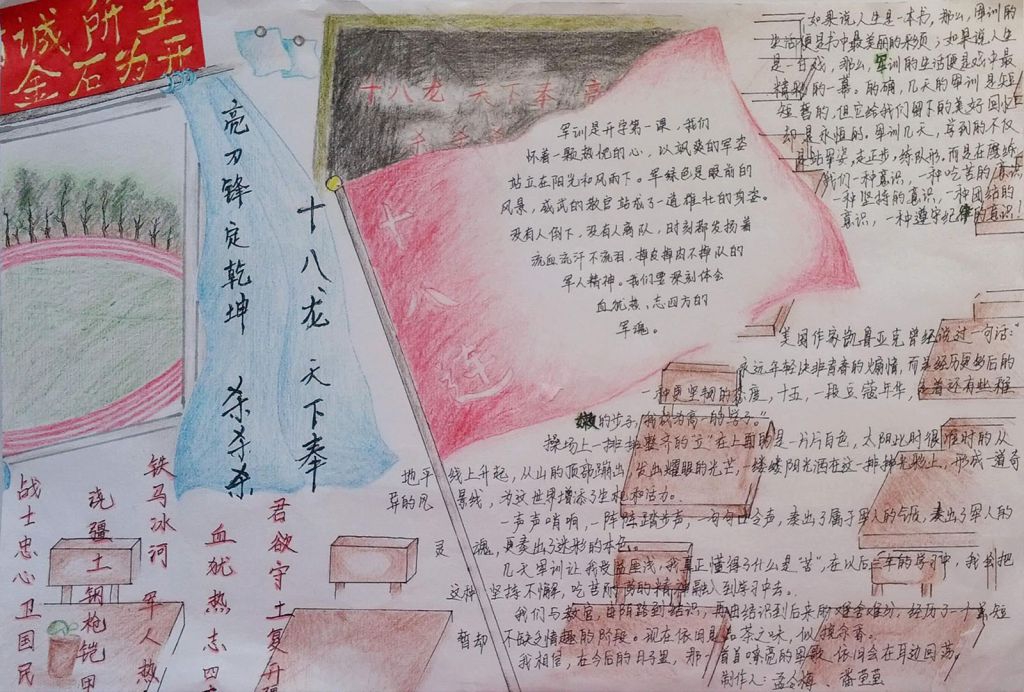 诚所至
金石为开
亮刀锋定乾坤 杀杀杀
十八龙 天下奉
十八龙 天下奉
杀杀
十八连
军训是开学第一课，我们
怀着一颗热忱的心，以飒爽的军姿
站立在阳光和风雨下。军绿色是眼前的
风景，威武的教官站成了一道雄壮的身姿。
没有人倒下，没有人离队，时刻都发扬着
流血流汗不流泪，掉皮掉肉不掉队的
军人精神。我们要深刻体会
血犹热、志四方的
军魂。
如果说人生是一本书，那么，军训的
生活便是书中最美丽的彩页；如果说人生
是一台戏，那么，军训的生活便是戏中最
精彩的一幕。的确，几天的军训是短
短暂的，但它给我们留下的美好回忆
却是永恒的，军训几天，学到的不仅
是站军姿，走正步，练队形，而是在磨练
我们一种意识，一种吃苦的意识
一种坚持的意识，一种团结的
意识，一种遵守纪律的意识！
美国作家凯鲁亚克曾经说过一句话：“
永远年轻决非青春的煽情，而是经历更多后的
一种更坚韧的态度，十五，一段豆蔻年华，
嫩的步子，我成为高一的学子。”
操场上一排排整齐的立在上面的是一片片白色，太阳此时很准时的从
地平线上升起，从山的顶部蹦出，发出耀眼的光芒，一缕缕阳光洒在这一排排光驰上，形成一道奇
异的风景线，为这世界增添了生机和活力。
一声声哨响，一阵阵踏步声，一句句口令声，表出了属于军人的气质，表出了军人的
灵魂，更表出了迷彩的本色。
几天军训让我受益匪浅，我真正懂得了什么是苦，在以后三年的学习中，我会把
这种坚持不懈，吃苦耐劳的精神融入到学习中去。
我们与教官，由陌路到结识，再由结识到后来的难舍难分，经历了一个最短
暂却不缺乏情趣的阶段。现在依旧是品茶之味，似
我相信，在今后的日子里，那一首首嘹亮的军歌，依旧会在耳边回荡。
制作人：孟令梅、潘萱萱
战士忠心卫国民
浇疆土 钢枪铠甲
铁马冰河 军人热
血犹热志四方
君欲守土复开疆